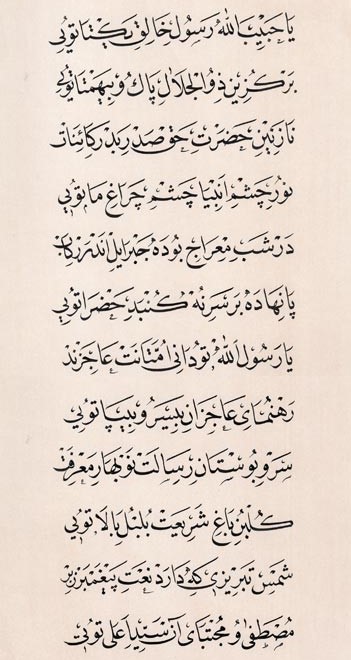 یا حبیب الله رسول خالق یکتا تویی
برگزین ذوالجلال پاک و بیهمتا تویی
نازنین حضرت حق صدر بدر کائنات
نور چشم انبیا چشم چراغ ما تویی
در شب معراج بوده جبرایل اندر رکاب
پا نهاده بر سر نه گنبد حضرا تویی
یا رسول الله تو دانی امتانت عاجزند
رهنمای عاجزان بیسر و بیپا تویی
سرو بوستان رسالت نوبهار معرفت
گلبن باغ شریعت بلبل بالا تویی
شمس تبریزی که دارد نعت پیغمبر زبر
مصطفی و مجتبای آن سید اعلی تویی